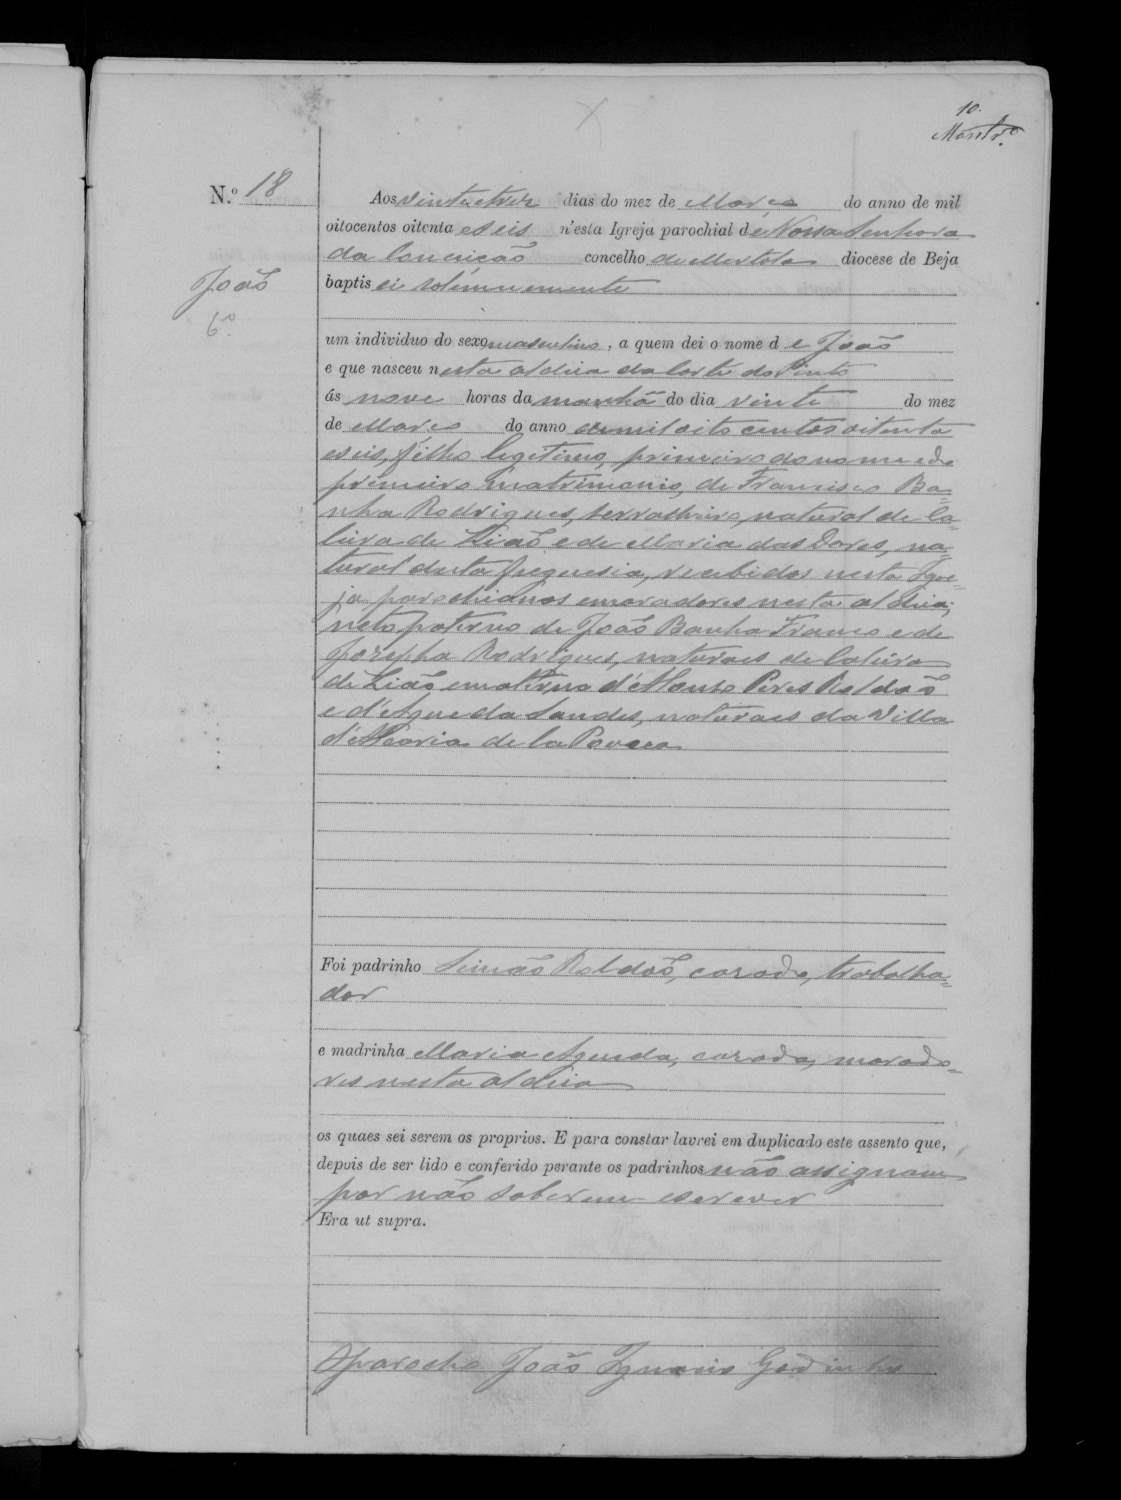 10.
N.º 18
Aos vinte e tres dias do mez de Março do anno de mil
oitocentos oitenta e seis n'esta Igreja parochial de Nossa Senhora
da Conceição concelho de Mertola diocese de Beja
João
baptisei solemnemente
6º
um individuo do sexo masculino, a quem dei o nome de João
e que nasceu nesta aldeia da Corte do Pinto
ás nove horas da manhã do dia vinte do mez
de Março do anno de mil oito centos oitenta
e seis, filho legitimo, primeiro do nome e do
primeiro matrimonio, de Francisco Ba=
nha Rodrigues, serralheiro, natural de Ca=
leira de Lião e de Maria das Dores, na=
tural desta freguesia, recebidos nesta Igre=
ja parochianos e moradores nesta aldeia;
neto paterno de João Banha Franco e de
Josepha Rodrigues, naturaes de Caleira
de Lião e materno d'Alonso Peres Roldaõ
e d'Agueda Sandes, naturaes da Villa
d'Alcaria de la Povoa
Foi padrinho Simão Roldaõ, casado, trabalha=
dor
e madrinha Maria Agueda, casada, morado=
res nesta aldeia
os quaes sei serem os proprios. E para constar lavrei em duplicado este assento que,
depois de ser lido e conferido perante os padrinhos não assignam
por não saberem escrever
Era ut supra.
O parocho João Ignacio Godinho